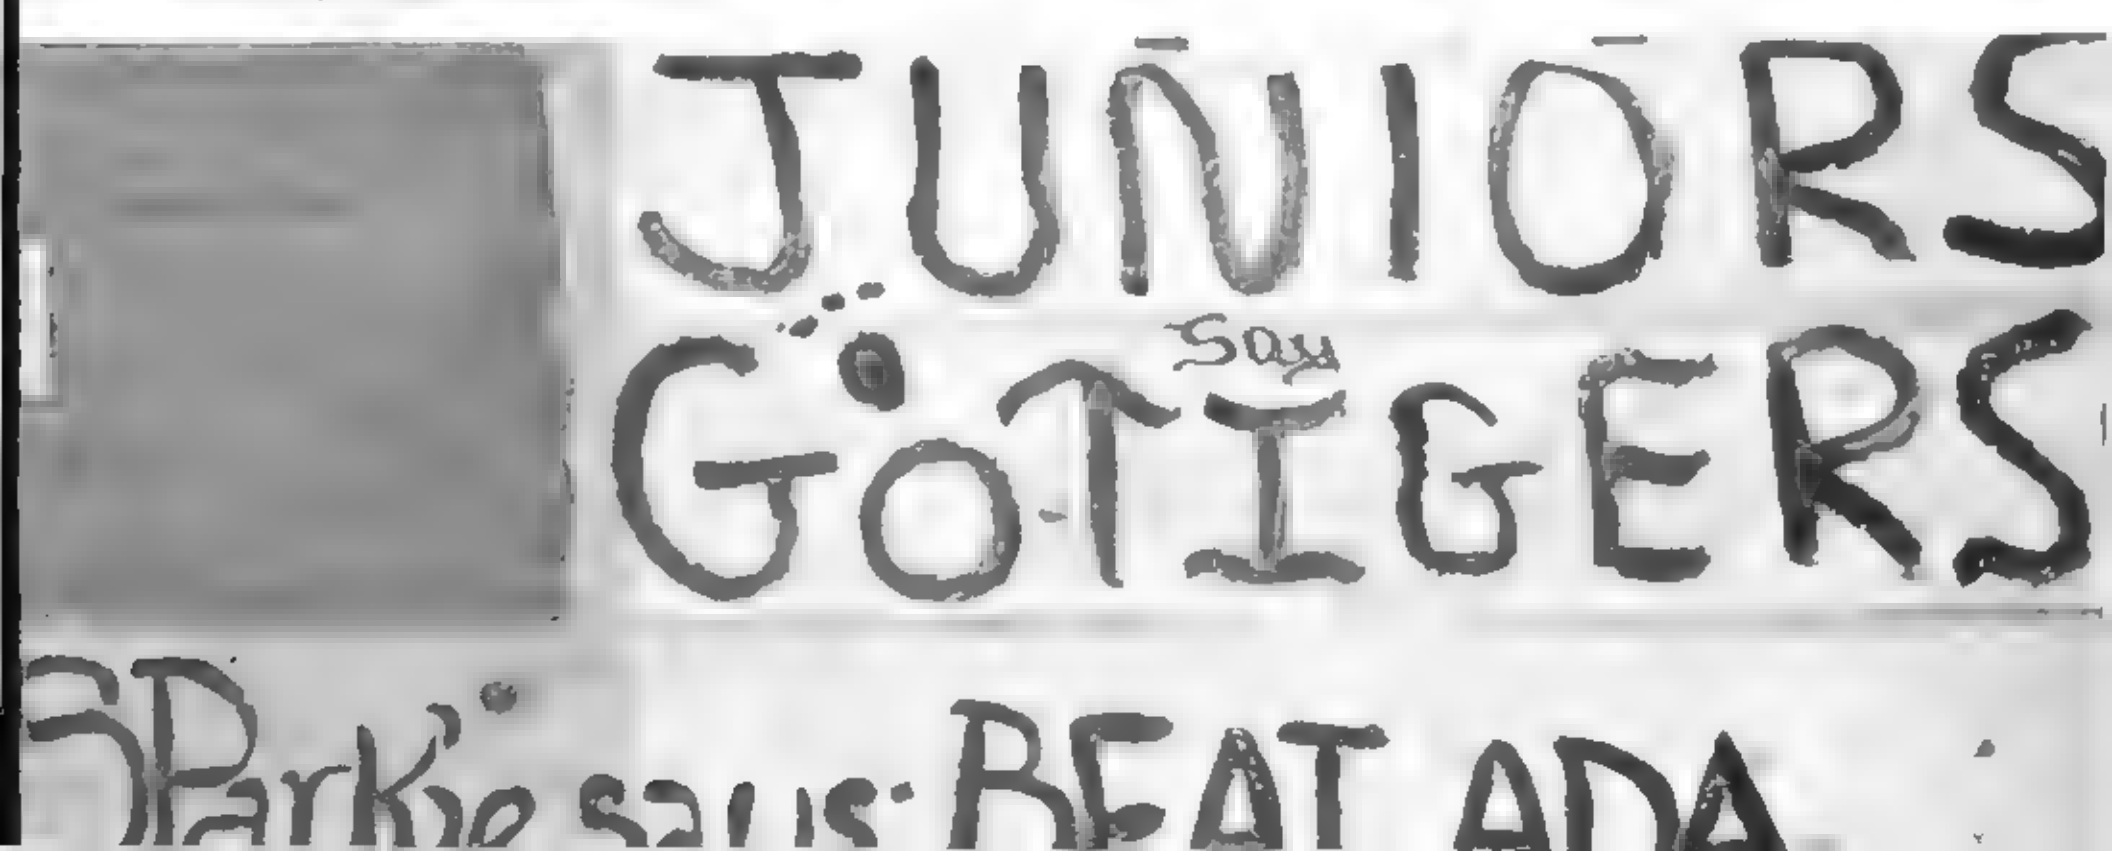 JUNIORS
Say
GO TIGERS
SParkie says: BEAT ADA